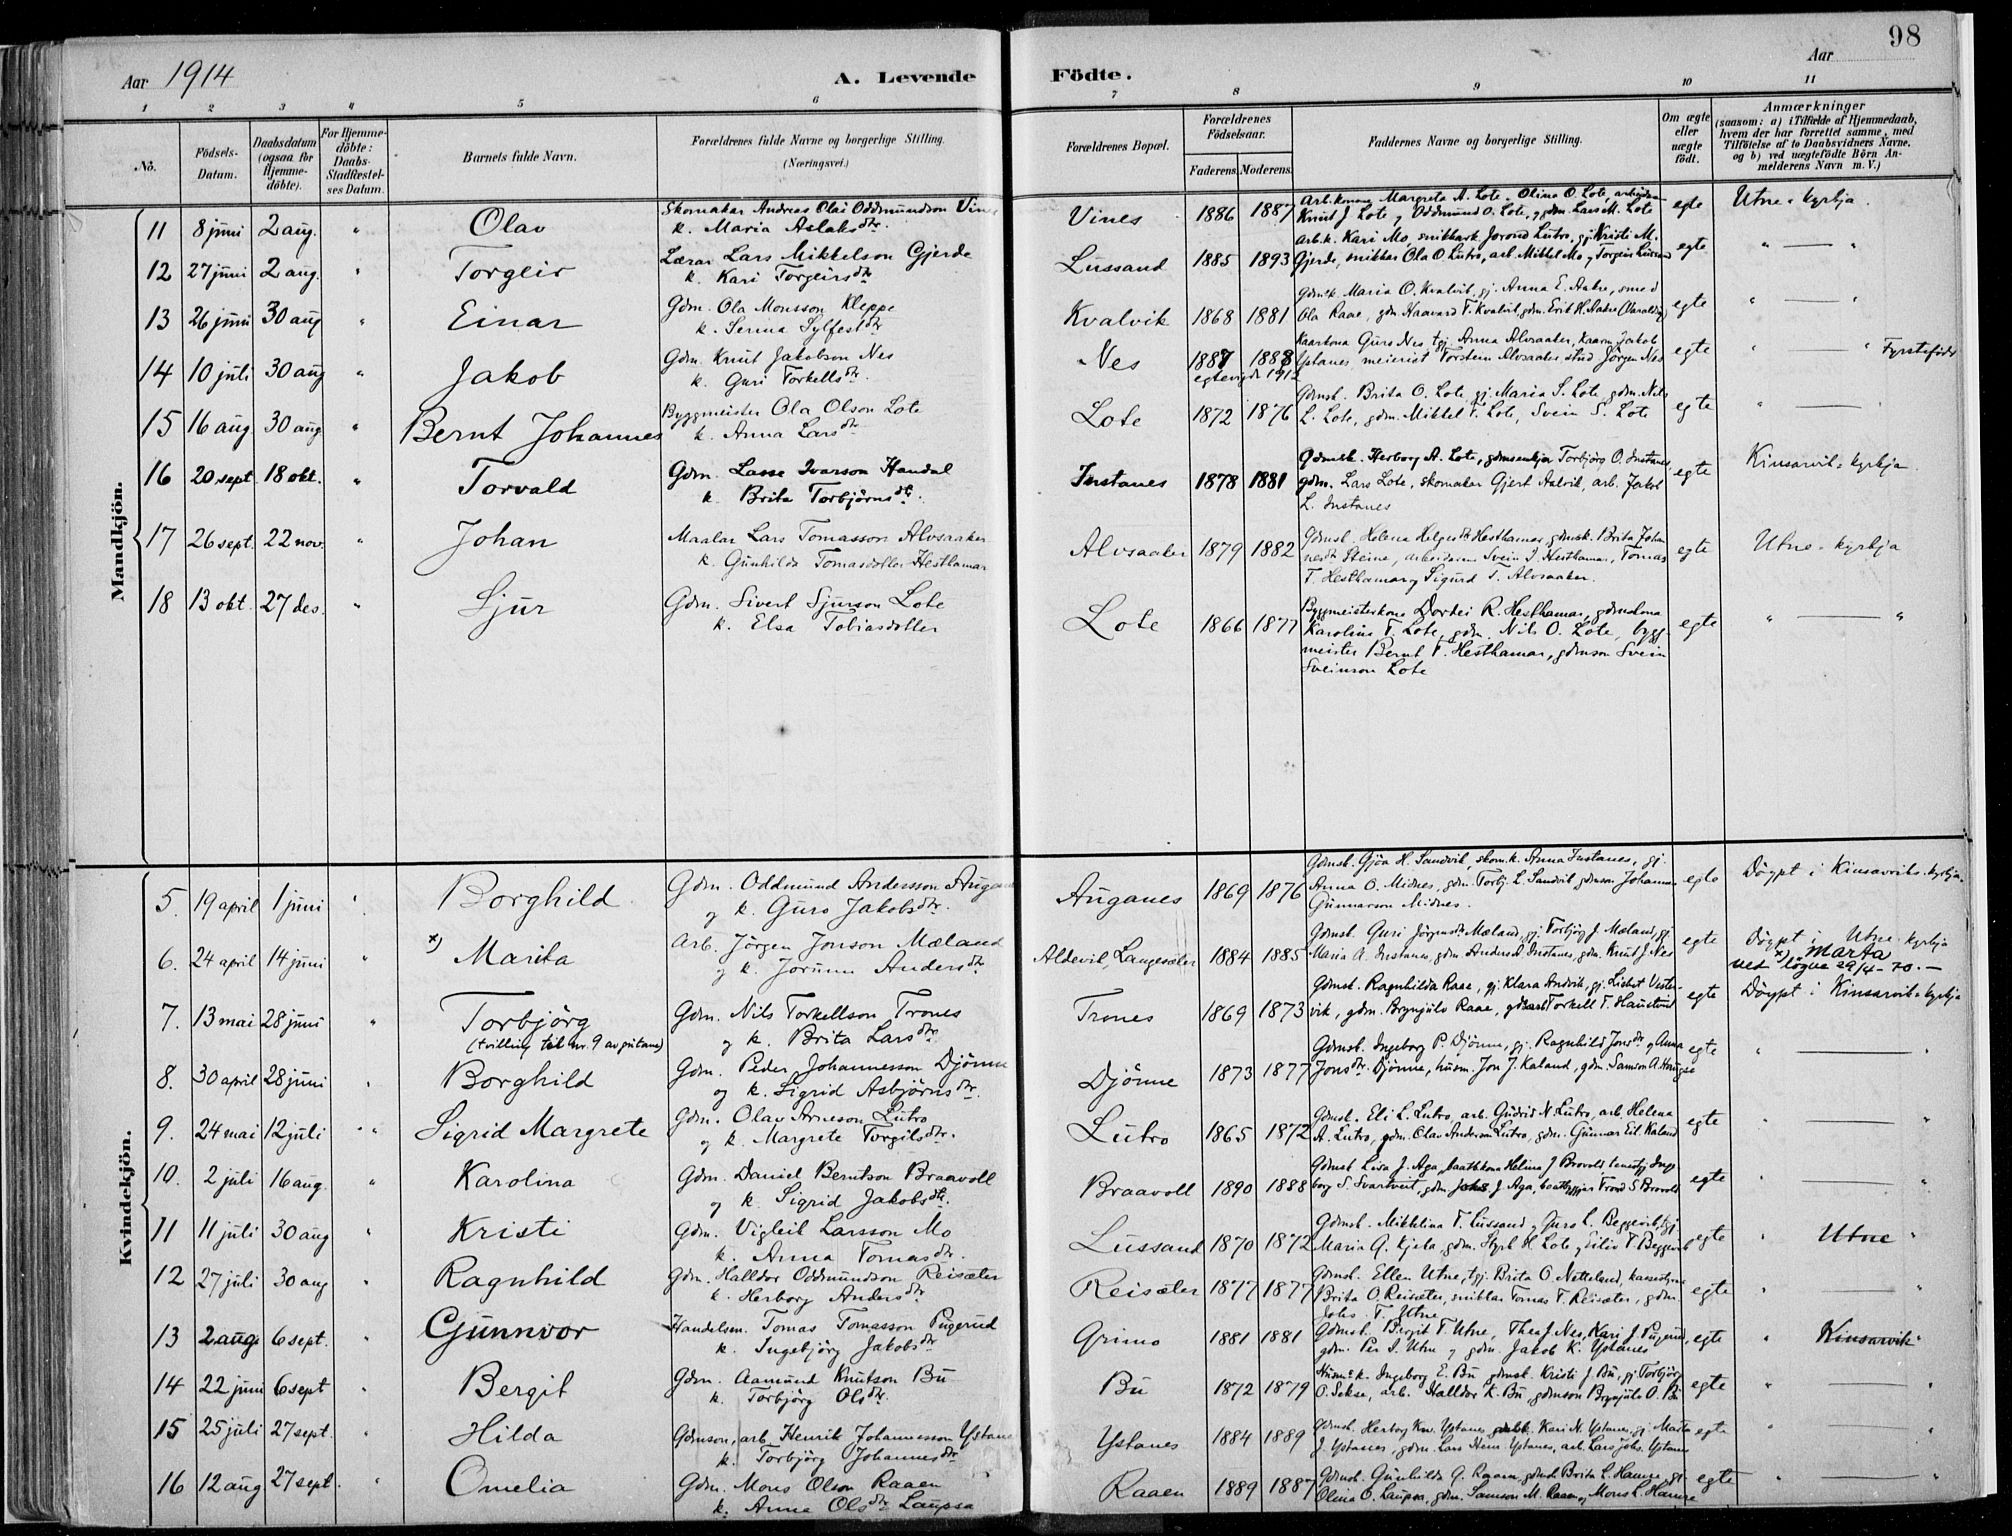 98
Aar 1914
A. Levende
Födte.
Aar
1 2 3 4 5 6 7 8 9 10 11
No.
Födsels-Datum.
Daabsdatum (ogsaa for Hjemme-döbte).
For Hjemme-döbte: Daabs-Stadfæstel-ses Datum.
Barnets fulde Navn.
Forældrenes fulde Navne og borgerlige Stilling.
(Næringsvei.)
Forældrenes Bopæl.
Forældrenes Födselsaar.
Faderens. Moderens.
Faddernes Navne og borgerlige Stilling.
Om ægte eller uægte födt.
Anmærkninger
(saasom: a) i Tilfælde af Hjemmedaab,
hvem der har forrettet samme, med
Tilföielse af to Daabsvidners Navne,
og b) ved uægtefödte Börn An-
melderens Navn m. V.)
Mandkjön.
11 8 juni 2 aug. " Olav
Skomakar Andreas Olai Oddmundson Vines
k. Maria Aslaksdtr.
Vines 1886 1887
Arb.kona Margreta A. Lote, Olina O. Lote, arbeidar
Knut J Lote y Oddmund O. Lote, y gdm. Lars M. Lote
egte Utne-kyrkja.
12 27 juni 2 aug. " Torgeir
Lærar Lars Mikkelson Gjerde
k. Kari Torgeirsdtr
Lussand 1885 1893
Arb.k. Kari Mo, snikkark. Jorond Lutro, gj. Kristi M.
Gjerde, snikkar Ola O Lutro, arb. Mikkel Mo y Torgeir Lussand
egte " — "
13 26 juni 30 aug " Einar
Gdm. Ola Monsson Kleppe
k. Serina Sylfestdtr
Kvalvik 1868 1881
Gdmsk. Maria O. Kvalvik, gj. Anna E. Aakre, smed
Ola Raae, gdm Haavard T. Kvalvik, gdm. Erik H. Aakre
egte " — "
14 10 juli 30 aug " Jakob
Gdm. Knut Jakobson Nes
k. Guri Torkellsdtr.
Nes 1887 1888
egtevigde 1912
Guro Nes, tgj. Anna Alvsaaker, Jakob
Ystanes, meierist Torstein Alvsaaker stud Jörgen Nes
egte " — " Fyrstefödt
15 16 aug 30 aug " Bernt Johannes
Byggmeister Ola Olson Lote
k. Anna Larsdtr
Lote 1872 1876
Gdmsk. Brita O. Lote, gj. Maria S. Lote, gdm. Nils
L. Lote, gdm. Mikkel T. Lote, Svein S. Lote
egte " — "
16 20 sept 18 okt. " Torvald
Gdm. Lasse Ivarson Handal
k. Brita Torbjörnsdtr.
Instanes 1878 1881
Gdmsk. Herborg A. Lote, gdmsenkja Torbjörg O. Instanes,
gdm. Lars Lote, skomakar Gjert Aalvik, arb. Jakob
L. Instanes
egte Kinsarvik-kyrkja.
17 26 sept. 22 nov. " Johan
Maalar Lars Tomasson Alvsaaker
k. Gunhilda Tomasdotter Hesthamar
Alvsaaker 1879 1882
Gdmsk. Helena Helgesdtr Hesthamar, gdmsk. Brita Johan
nesdtr Steine, arbeidaren Svein I. Hesthamar, Tomas
T. Hesthamar y Sigurd T. Alvsaaker.
egte Utne-kyrkja
18 13 okt. 27 des. " Sjur
Gdm. Sivert Sjurson Lote
k. Elsa Tobiasdotter
Lote 1866 1877
Byggmeisterkona Dordei R. Hesthamar, gdmskona
Karolina T. Lote, gdm. Nils O. Lote, bygg-
meister Bernt T. Hesthamar, gdmson Svein
Sveinson Lote
egte " — "
Kvindekjön.
5. 19 april 1 juni " Borghild
Gdm. Oddmund Andersson Augan
y k. Guro Jakobsdtr.
Auganes 1869 1876
Gdmsk. Gjöa H. Sandvik, skom.k. Anna Instanes, gj.
Anna O. Midnes, gdm. Torbj. L. Sandvik gdmson Johannes
Gunnarson Midnes.
egte Döypt i Kinsarviks-kyrkja.
6. 24 april 14 juni " x) Marita
Arb. Jörgen Jonson Mæland
y k. Jorunn Andersdtr
Aldevik, Langesæter 1884 1885
Gdmsk. Guri Jörgensdtr Mæland, gj. Torbjörg J. Mæland, gj.
Maria A. Instanes, gdm. Anders Instanes, gdm. Knut J. Nes
egte Döypt i Utne-kyrkja
x) "Marta
ved logne 29/4-70.–
7. 13 mai 28 juni " Torbjörg
(tvilling til nr. 9 av gutane)
Gdm. Nils Torkellson Trones
y k. Brita Larsdtr
Trones 1869 1873
Gdmsk. Ragnhilda Raae, gj. Klara Andvik, gj. Lisbet Vester-
vik, gdm. Brynjulv Raae, Torkell T. Haustveit
egte Döypt i Kinsarvik-kyrkja
8. 30 april 28 juni " Borghild
Gdm. Peder Johannesson Djönne
og k. Sigrid Asbjörnsdtr.
Djönne 1873 1877
Gdmsk. Ingeborg P. Djönne, gj. Ragnhild Jonsdtr y Anna
Jonsdtr. Djönne, husm. Jon J. Kaland, gdm. Samson A.
egte " — "
9. 24 mai 12 juli " Sigrid Margrete
Gdm. Olav Arneson Lutro
y k. Margrete Torgilsdtr.
Lutro 1865 1872
Gdmsk. Eli L. Lutro, arb. Gudrid N. Lutro, arb. Helena
A. Lutro, gdm. Olav Anderson Lutro, gdm. Gunnar Eil. Kaland
egte " — "
10. 2 juli 16 aug. " Karolina
Gdm. Daniel Berntson Braavoll
y k. Sigrid Jakobsdtr.
Braavoll 1890 1888
Gdmsk. Lisa J. Aga, baatbkona Helina J Brovold, tenestj Inge
borg S. Svartveit, gdm. J Aga, baatbyggjar Trond S Brovold
egte " — "
11 11 juli 30 aug " Kristi
Gdm. Vigleik Larsson Mo
k. Anna Tomasdtr.
Lussand 1870 1872
Gdmsk. Mikkelina T. Lussand y Guro L. Beggevik, tgj.
Maria G. Kjerla, gdm. H Lote y Eiliv T. Beggevik
egte " Utne "
12 27 juli 30 aug " Ragnhild
Gdm. Halldor Oddmundson Reisæter
k. Herborg Andersdtr
Reisæter 1877 1877
Gdmsk. Ellen Utne, tgj. Brita O. Netteland,
Brita O. Reisæter, snikkar Tomas T. Reisæter, gdm.
Johs. T. Utne
egte " — "
13 2 aug. 6 sept. " Gunnvor
Handelsm. Tomas Tomasson Pugerud
k. Ingebjörg Jakobsdtr
Grimo 1881 1881
Gdmsk. Bergit T. Utne, Thea J. Nes, Kari J. Pugerud,
gdm. Per S. Utne y gdm. Jakob K. Ystanes
egte " Kinsarvik "
14 22 juni 6 sept " Bergit
Gdm. Aamund Knutson Bu
k. Torbjörg Olsdtr.
Bu 1872 1879
Husm.k. Ingeborg E. Bu gdmsk. Kristi J. Bu, gj. Torbjörg
O. Sekse, arb. Halldor K. Bu, gdmson Brynjulv O. Bu
egte " — "
15 25 juli 27 sept. " Hilda
Gdmson, arb. Henrik Johannesson Ystanes
k. Torbjörg Johannesdtr
Ystanes 1884 1889
Gdmsk. Herborg Ystanes, Kari N. Ystanes, gj. Marta
J. Ystanes, gdm. Lars Ystanes, arb. Lars Johs. Ystanes
egte " — "
16 12 aug 27 sept. " Omelia
Gdm. Mons Olson Raaen
k. Anna Olsdtr Laupsa
Raaen 1889 1887
Gdmsk. Gunhilda G. Raaen, gdmsk Brita L. Hamre, gj.
Olina O. Laupsa, gdm. Samson M. Raaen y Mons L. Hamre
egte " — "